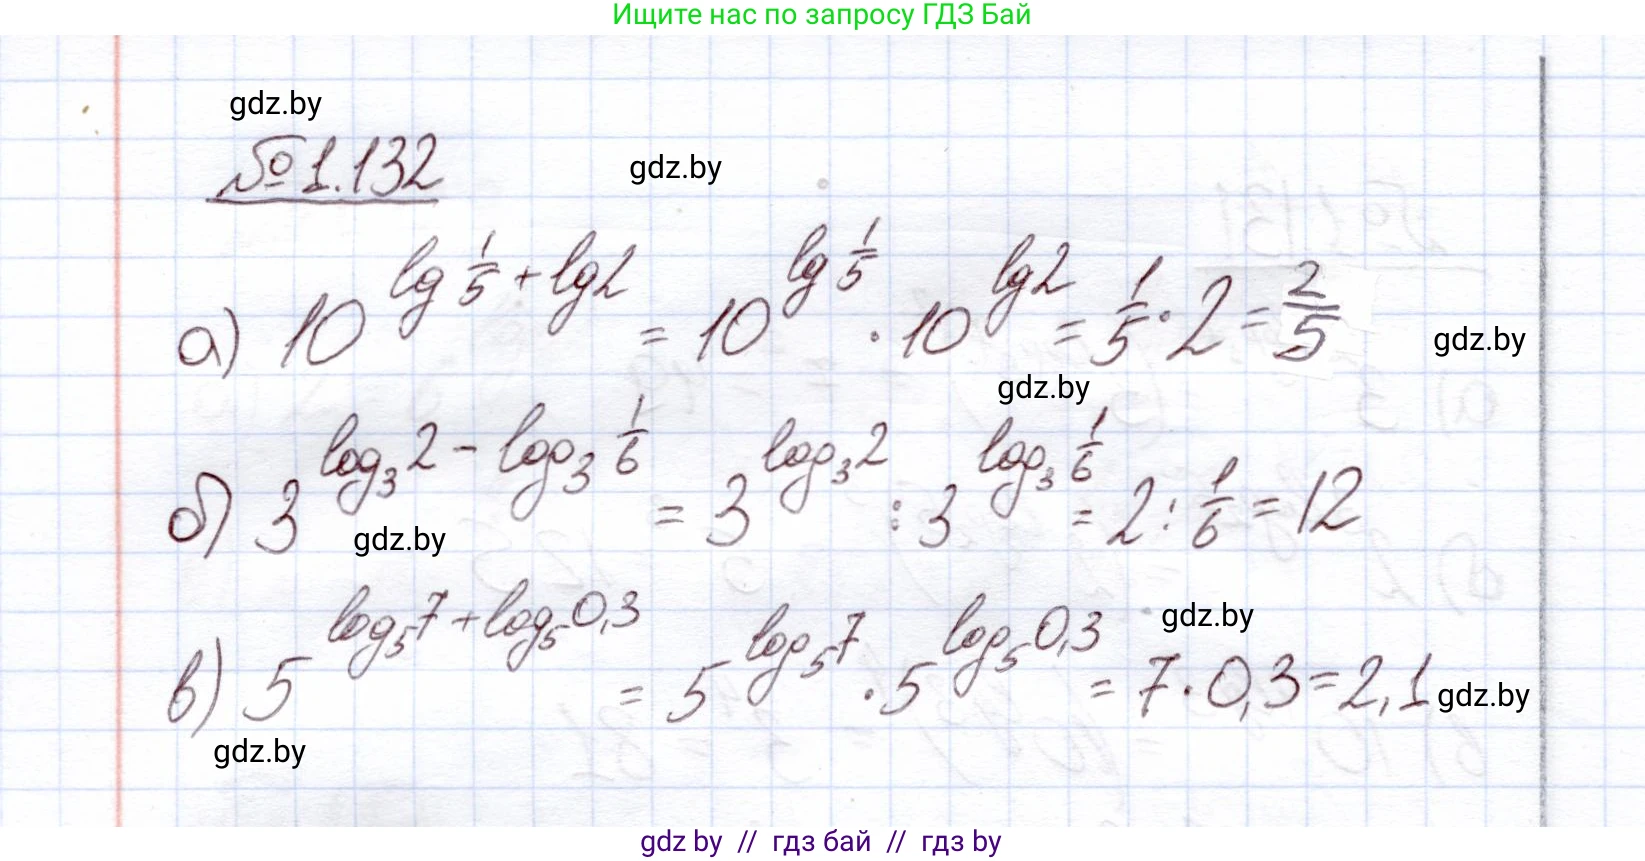 Ищите нас по запросу ГДЗ Бай
gdz.by
№1.132
gdz.by
а) 10^(lg 1/5 + lg2) = 10^(lg 1/5) · 10^(lg2) = 1/5 · 2 = 2/5
gdz.by
gdz.by
б) 3^(log₃2 - log₃ 1/6) = 3^(log₃2) : 3^(log₃ 1/6) = 2 : 1/6 = 12
gdz.by
в) 5^(log₅7 + log₅0,3) = 5^(log₅7) · 5^(log₅0,3) = 7 · 0,3 = 2,1
gdz.by
gdz.by
gdz.by
gdz by // гдз бай // гдз by